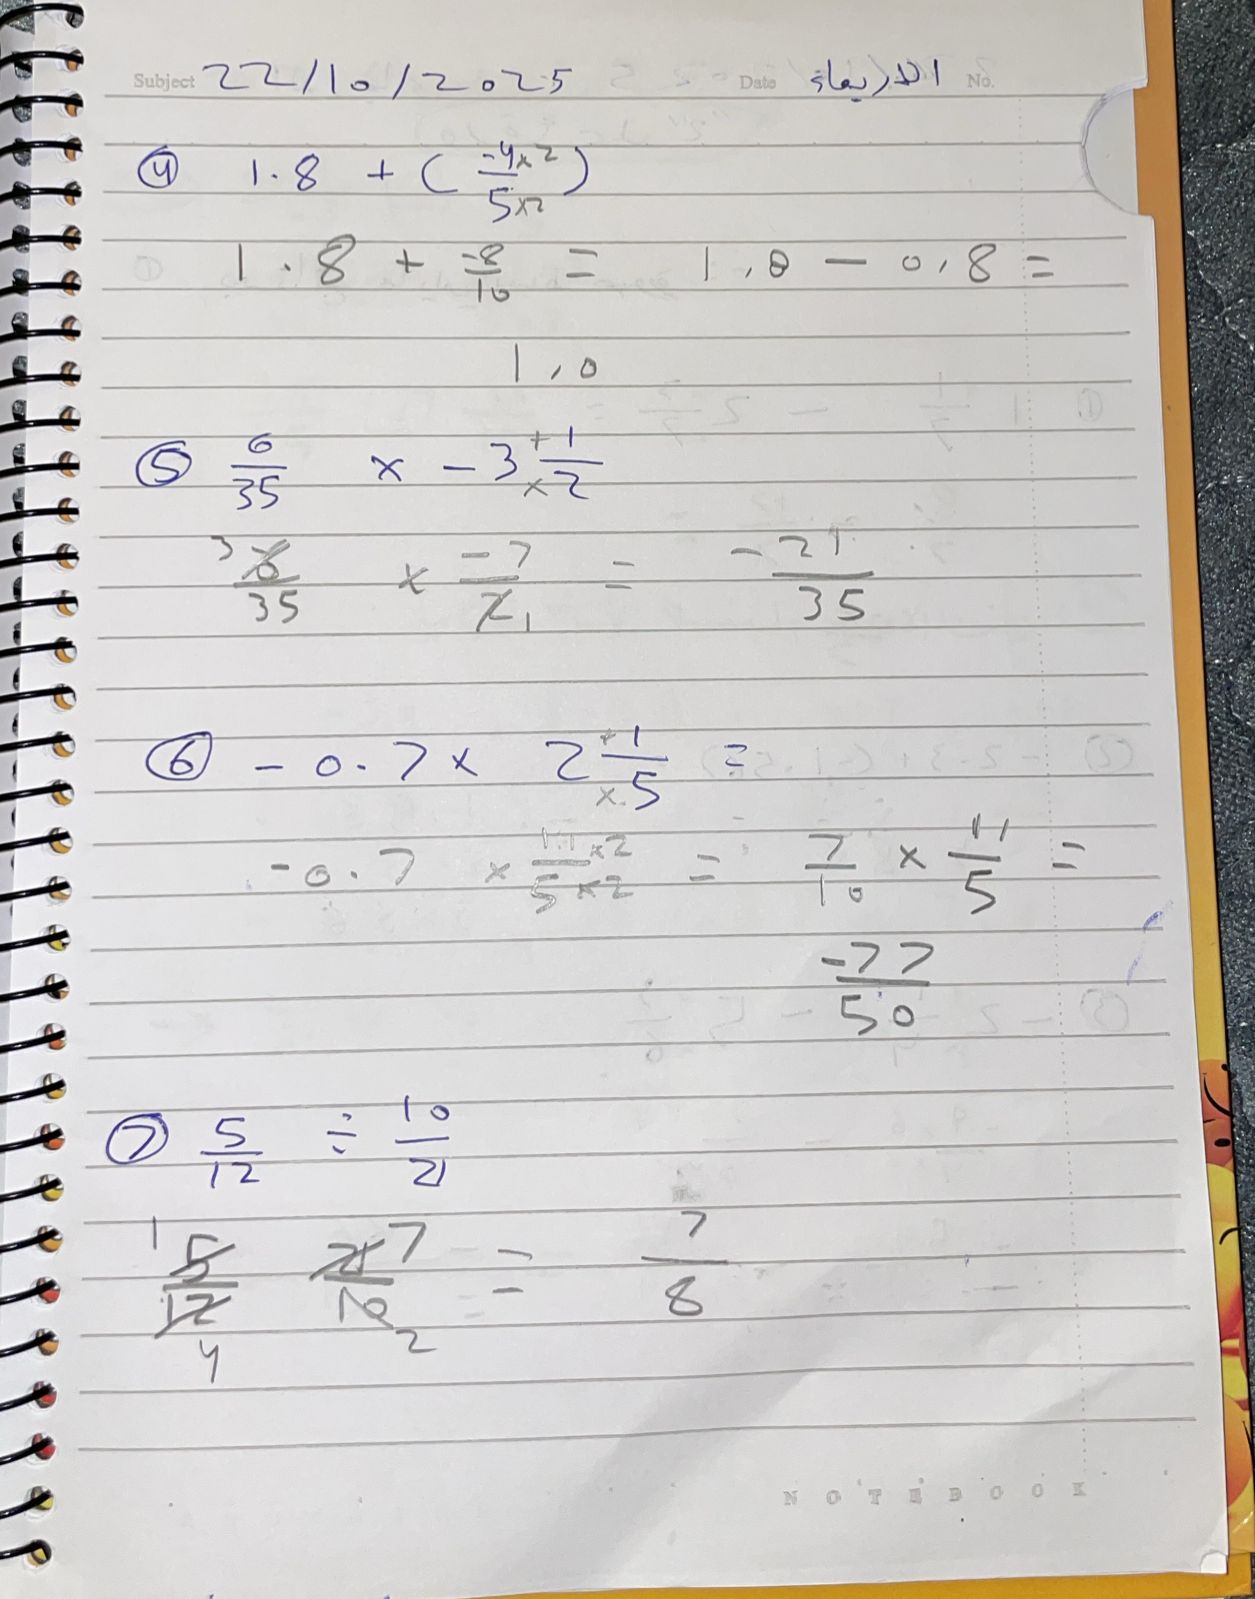 Subject 22/10/2025 Date الاربعاء No.
④ 1.8 + (-4×2/5×2)
1.8 + -8/10 = 1,8 − 0,8 =
1,0
⑤ 6/35 × -3 +1/×2
3 6/35 × -7/2 1 = -21/35
⑥ -0.7 × 2 +1/×5 =
-0.7 × 11×2/5×2 = 7/10 × 11/5 =
-77/50
⑦ 5/12 ÷ 10/21
1 5/12 4 21 7/10 2 = 7/8
NOTEBOOK